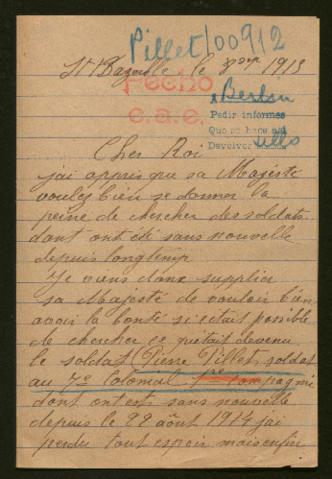 Pillet/00912
St Bazeille le 1915
Fecho
c.a.e.
a Berlin
Pedir informes
Que se hace así
Devolver
Cher Roi
jai appris que sa Majesté
voules bien se donner la
peine de chercher des soldats
dont ont été sans nouvelle
depuis longtemp
Je viens donc supplier
sa Majesté de vouloir bien
avoir la bonté si s'etait possible
de chercher ce qu'etait devenu
le soldat Pierre Pillet soldat
au 7e Colonial 1re compagnie
dont ont est sans nouvelle
depuis le 22 août 1914 jai
perdu tout espoir mais enfin